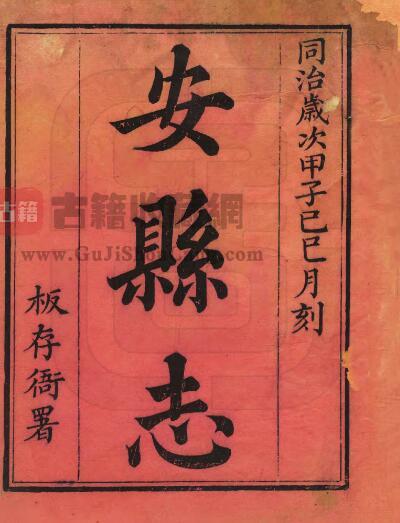 同治歲次甲子己巳月刻
安縣志
板存衙署
古籍
古籍收藏網
www.GuJiShouCang.com